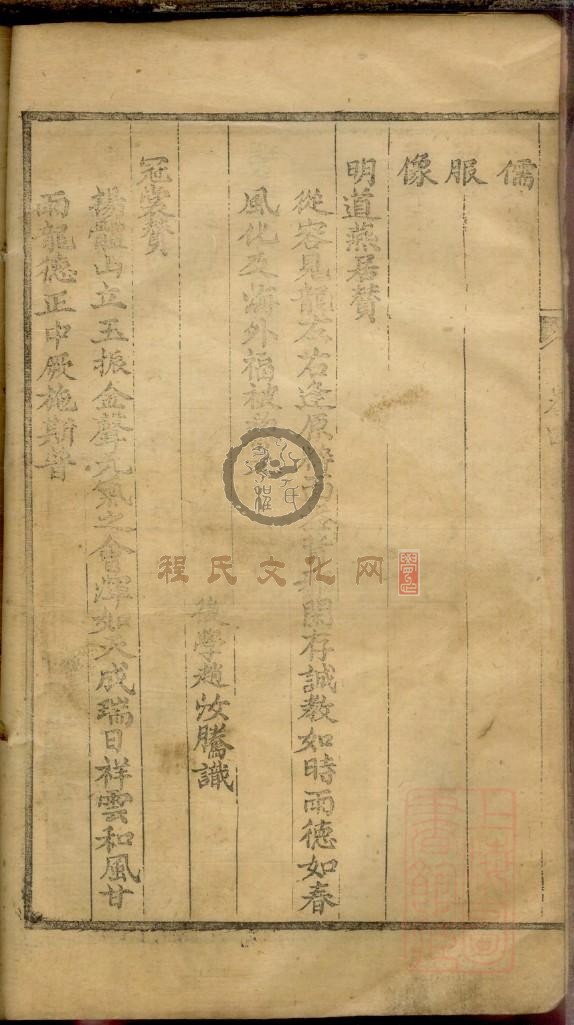 儒服像
明道燕居贊
從容見龍左右逢原閑存誠教如時雨德如春
風化及海外福被
後學趙汝騰識
冠裳贊
揚體山立玉振金聲元氣之會渾然天成瑞日祥雲和風甘
雨龍德正中厥施斯普
程氏文化网